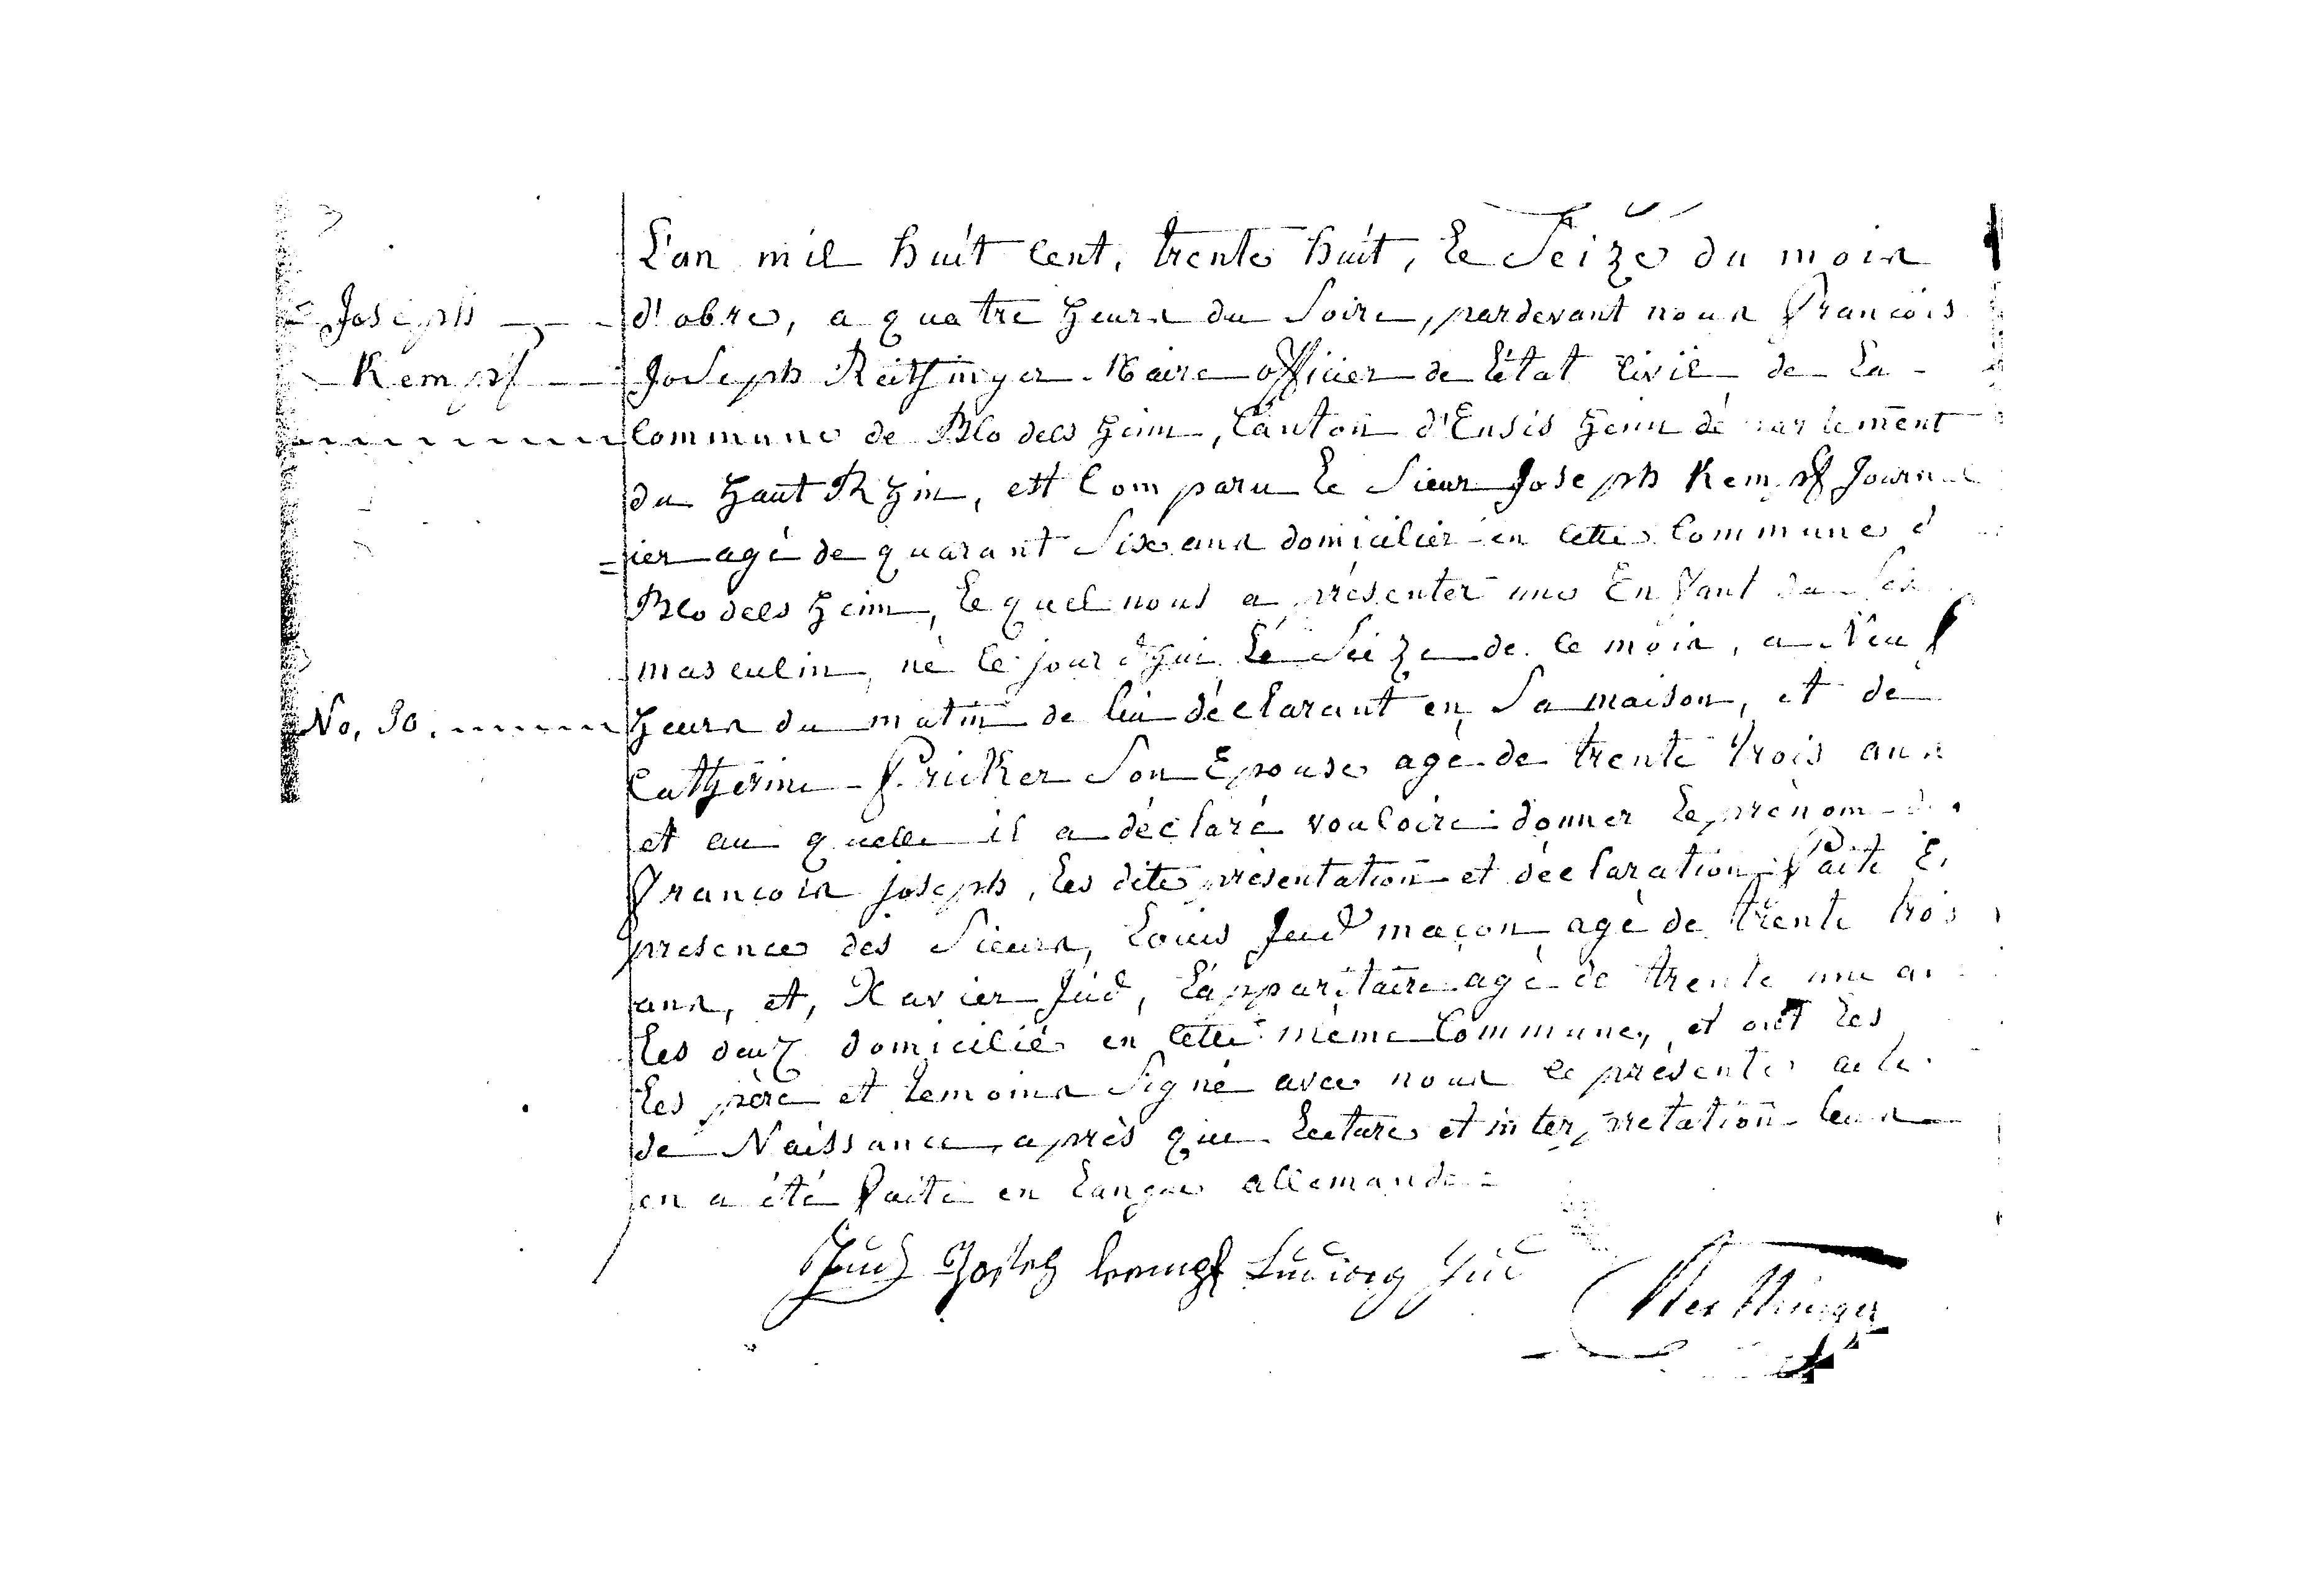 L'an mil huit Cent, trente huit, le Seize du mois
Joseph
d'obre, a quatre heurs du Soire, pardevant nous Francois
Kempf
Joseph Reithinger Maire officier de l'état Civil de la
Commune de Blodelsheim, Canton d'Ensisheim département
du haut Rhin, est Comparu le Sieur Joseph Kempf Journal
=ier agé de quarant Six ans domicilier en cette Commune d
Blodelsheim, lequel nous a présenter une Enfant du Sex
masculin, né le jour d'hui le Seize de ce mois, a Neuf
No. 30.
heurs du matin de lui déclarant en Sa maison, et de
Catherine Fricker Son Epouse agé de trente trois ans
et au quelle il a déclaré vouloire donner le prénom de
Francois joseph, les dite présentation et déclaration faite En
presence des Sieurs, Louis Jud maçon agé de trente trois
ans, et, Xavier Jud, l'apparitaire agé de trente une an
les deux domicilié en cette même Commune, et ont les
les père et temoins Signé avec nous le présente acte
de Naissance, après que lecture et interpretation leurs
en a été faite en langue allemande =
Jud Joseph Kempf Ludwig Jud
Reithinger